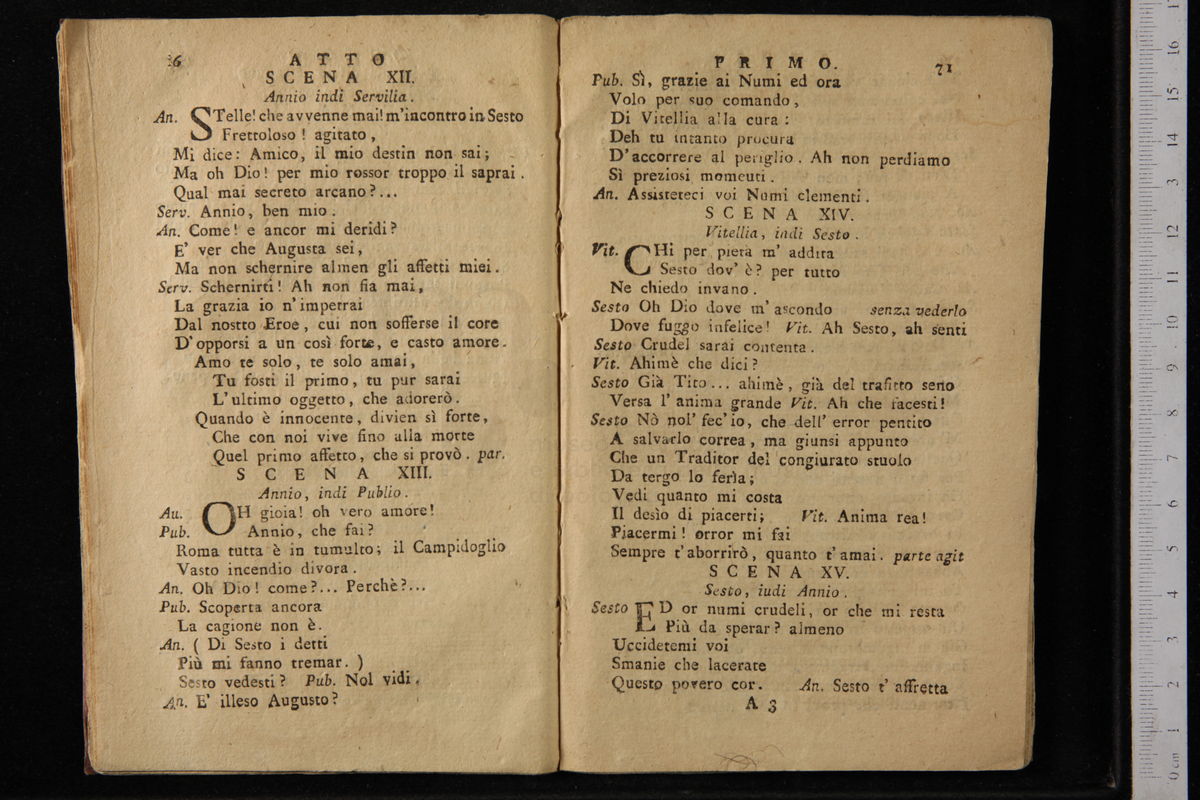 36 ATTO
SCENA XII.
Annio indi Servilia.
An. STelle! che avvenne mai! m'incontro in Sesto
Frettoloso! agitato,
Mi dice: Amico, il mio destin non sai;
Ma oh Dio! per mio rossor troppo il saprai.
Qual mai secreto arcano?...
Serv. Annio, ben mio.
An. Come! e ancor mi deridi?
E' ver che Augusta sei,
Ma non schernire almen gli affetti miei.
Serv. Schernirti! Ah non fia mai,
La grazia io n'impetrai
Dal nostto Eroe, cui non sofferse il core
D'opporsi a un così forte, e casto amore.
Amo te solo, te solo amai,
Tu fosti il primo, tu pur sarai
L'ultimo oggetto, che adorerò.
Quando è innocente, divien sì forte,
Che con noi vive fino alla morte
Quel primo affetto, che si provò. par.
SCENA XIII.
Annio, indi Publio.
Au. OH gioia! oh vero amore!
Pub. Annio, che fai?
Roma tutta è in tumulto; il Campidoglio
Vasto incendio divora.
An. Oh Dio! come?... Perchè?...
Pub. Scoperta ancora
La cagione non è.
An. ( Di Sesto i detti
Più mi fanno tremar. )
Sesto vedesti? Pub. Nol vidi.
An. E' illeso Augusto?
PRIMO. 71
Pub. Sì, grazie ai Numi ed ora
Volo per suo comando,
Di Vitellia alla cura:
Deh tu intanto procura
D'accorrere al periglio. Ah non perdiamo
Sì preziosi momeuti.
An. Assisteteci voi Numi clementi.
SCENA XIV.
Vitellia, indi Sesto.
Vit. CHi per pietà m' addita
Sesto dov' è? per tutto
Ne chiedo invano.
Sesto Oh Dio dove m' ascondo senza vederlo
Dove fuggo infelice! Vit. Ah Sesto, ah senti
Sesto Crudel sarai contenta.
Vit. Ahimè che dici?
Sesto Già Tito... ahimè, già del trafitto seno
Versa l' anima grande Vit. Ah che facesti!
Sesto Nò nol' fec' io, che dell' error pentito
A salvarlo correa, ma giunsi appunto
Che un Traditor del congiurato stuolo
Da tergo lo ferìa;
Vedi quanto mi costa
Il desìo di piacerti; Vit. Anima rea!
Piacermi! orror mi fai
Sempre t'aborrirò, quanto t'amai. parte agit
SCENA XV.
Sesto, iudi Annio.
Sesto ED or numi crudeli, or che mi resta
Più da sperar? almeno
Uccidetemi voi
Smanie che lacerate
Questo povero cor. An. Sesto t' affretta
A 3
16
15
14
13
12
11
10
9
8
7
6
5
4
3
2
1
0 cm